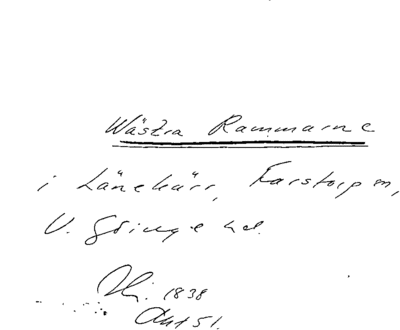 Wästra Rammarne
i Länekärr, Farstorp sn,
V. Göinge hd.
1838
Akt 51.